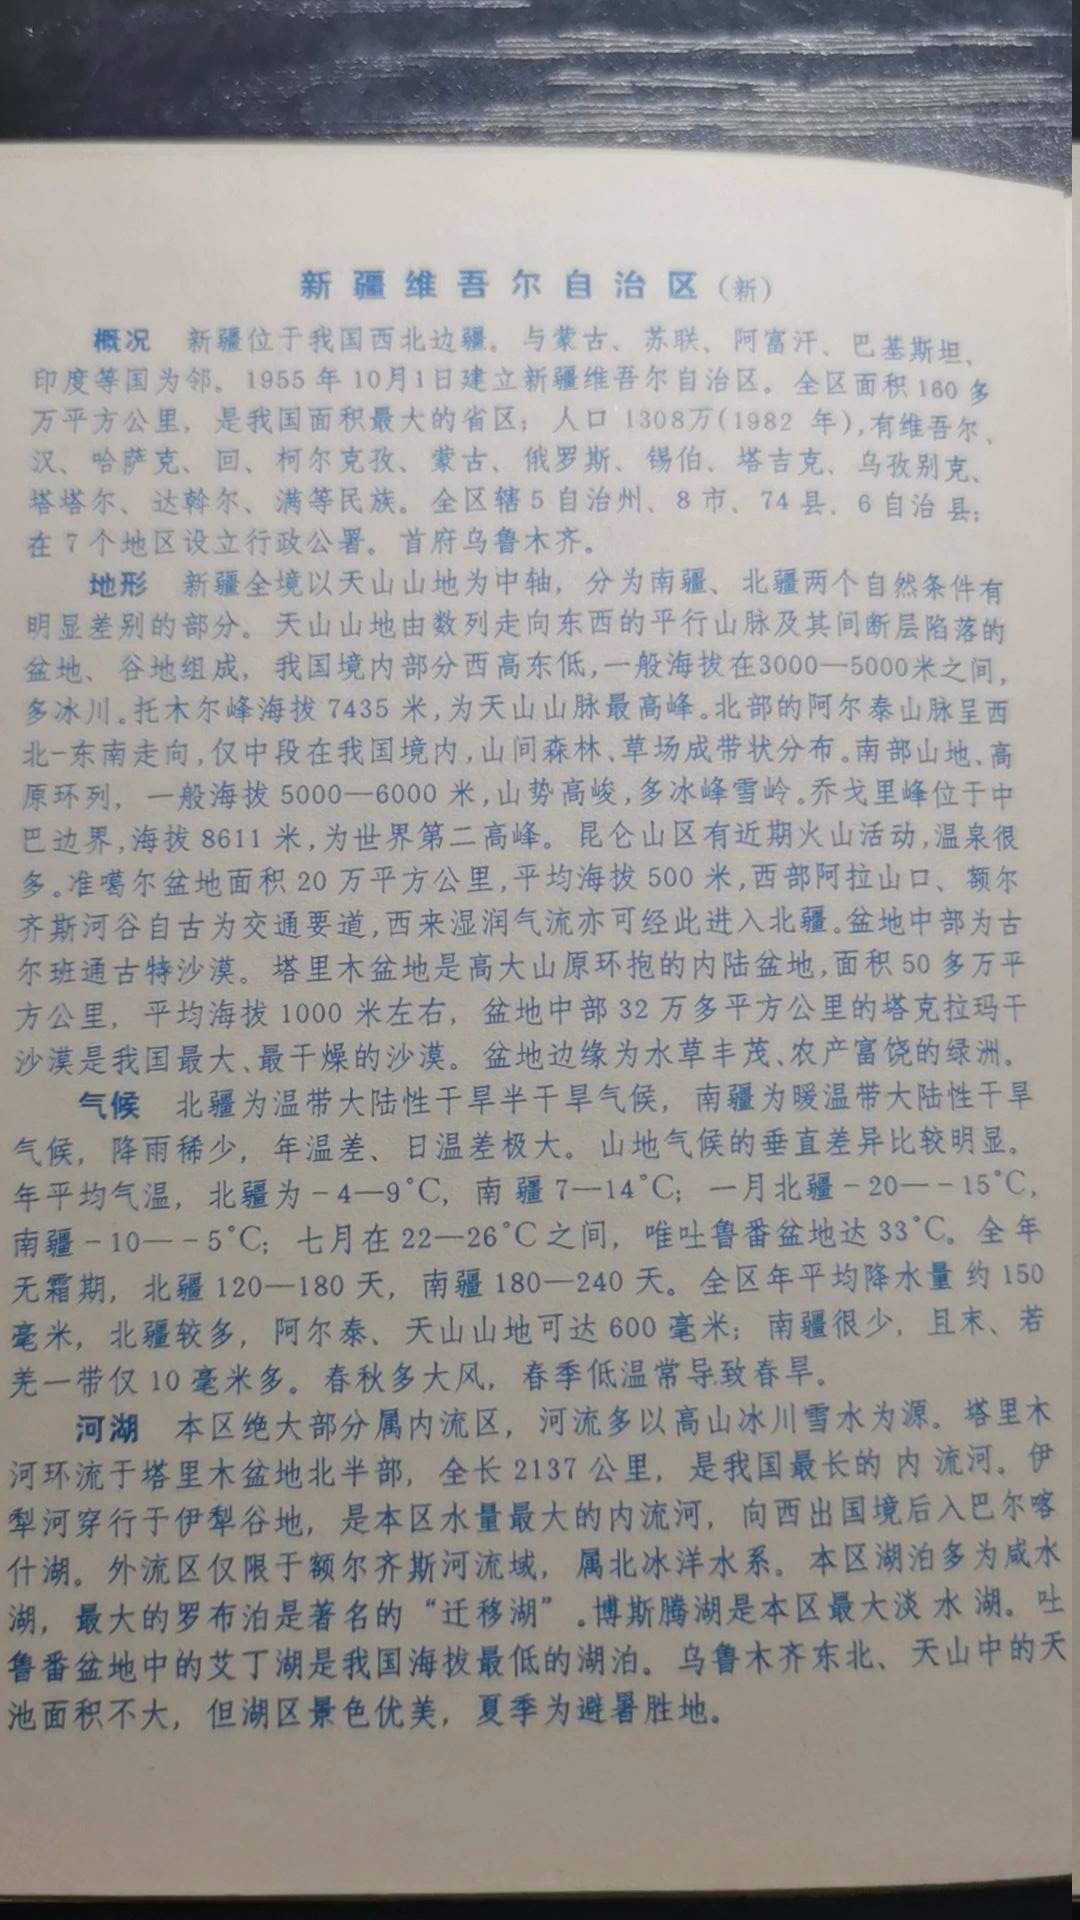 新疆维吾尔自治区（新）
概况 新疆位于我国西北边疆。与蒙古、苏联、阿富汗、巴基斯坦、
印度等国为邻。1955年10月1日建立新疆维吾尔自治区。全区面积160多
万平方公里，是我国面积最大的省区；人口1308万（1982 年），有维吾尔、
汉、哈萨克、回、柯尔克孜、蒙古、俄罗斯、锡伯、塔吉克、乌孜别克、
塔塔尔、达斡尔、满等民族。全区辖5自治州、8市、74县、6自治县；
在7个地区设立行政公署。首府乌鲁木齐。
地形 新疆全境以天山山地为中轴，分为南疆、北疆两个自然条件有
明显差别的部分。天山山地由数列走向东西的平行山脉及其间断层陷落的
盆地、谷地组成，我国境内部分西高东低，一般海拔在3000—5000米之间，
多冰川。托木尔峰海拔7435米，为天山山脉最高峰。北部的阿尔泰山脉呈西
北-东南走向，仅中段在我国境内，山间森林、草场成带状分布。南部山地、高
原环列，一般海拔5000—6000米，山势高峻，多冰峰雪岭。乔戈里峰位于中
巴边界，海拔8611米，为世界第二高峰。昆仑山区有近期火山活动，温泉很
多。准噶尔盆地面积20万平方公里，平均海拔500米，西部阿拉山口、额尔
齐斯河谷自古为交通要道，西来湿润气流亦可经此进入北疆。盆地中部为古
尔班通古特沙漠。塔里木盆地是高大山原环抱的内陆盆地，面积50多万平
方公里，平均海拔1000米左右，盆地中部32万多平方公里的塔克拉玛干
沙漠是我国最大、最干燥的沙漠。盆地边缘为水草丰茂、农产富饶的绿洲。
气候 北疆为温带大陆性干旱半干旱气候，南疆为暖温带大陆性干旱
气候，降雨稀少，年温差、日温差极大。山地气候的垂直差异比较明显。
年平均气温，北疆为-4—9°C，南疆7—14°C；一月北疆-20—-15°C，
南疆-10—-5°C；七月在22—26°C之间，唯吐鲁番盆地达33°C。全年
无霜期，北疆120—180天，南疆180—240天。全区年平均降水量约150
毫米，北疆较多，阿尔泰、天山山地可达600毫米；南疆很少，且末、若
羌一带仅10毫米多。春秋多大风，春季低温常导致春旱。
河湖 本区绝大部分属内流区，河流多以高山冰川雪水为源。塔里木
河环流于塔里木盆地北半部，全长2137公里，是我国最长的内流河。伊
犁河穿行于伊犁谷地，是本区水量最大的内流河，向西出国境后入巴尔喀
什湖。外流区仅限于额尔齐斯河流域，属北冰洋水系。本区湖泊多为咸水
湖，最大的罗布泊是著名的“迁移湖”。博斯腾湖是本区最大淡水湖。吐
鲁番盆地中的艾丁湖是我国海拔最低的湖泊。乌鲁木齐东北、天山中的天
池面积不大，但湖区景色优美，夏季为避暑胜地。